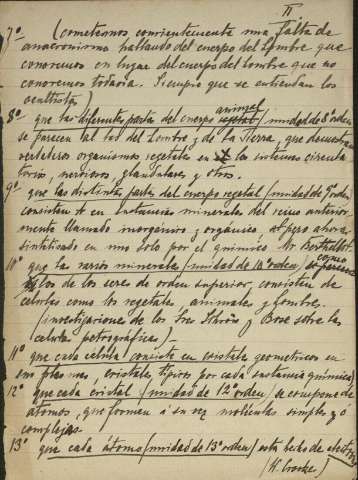 II
7º (Cometemos conscientemente una falta de
anacronismo hablando del cuerpo del hombre que
conocemos en lugar del cuerpo del hombre que no
conocemos todavía. Siempre que se entiendan los
8º que las diferentes partes del cuerpo animal (unidad de 8º orden)
se parecen al del hombre, y de la tierra, que demuestran
verdaderos organismos vegetales en los sistemas circula
torios, nerviosos, glandulares y otros.
9º que las distintas partes del cuerpo vegetal (unidad de 9º orden)
consisten en substancias minerales del reino anterior-
mente llamado inorgánico y orgánico, pero ahora
sintetizado en uno solo por el químico Mr Berthelot.
10º que los varios minerales (unidad de 10º orden) como
los de los seres de orden superior, consisten de
células como los vegetales, animales y hombre.
(investigaciones de los Sres Schrön y Bose sobre las
células petrográficas)_
11º que cada célula consiste en cristales geométricos en
sus planos, cristales típicos por cada substancia química)
12º que cada cristal (unidad de 12º orden) se compone de
átomos, que forman a su vez moléculas simples y/o
complejas.
13º que cada átomo (unidad de 13º orden) está hecho de electrones
(W. Crookes)